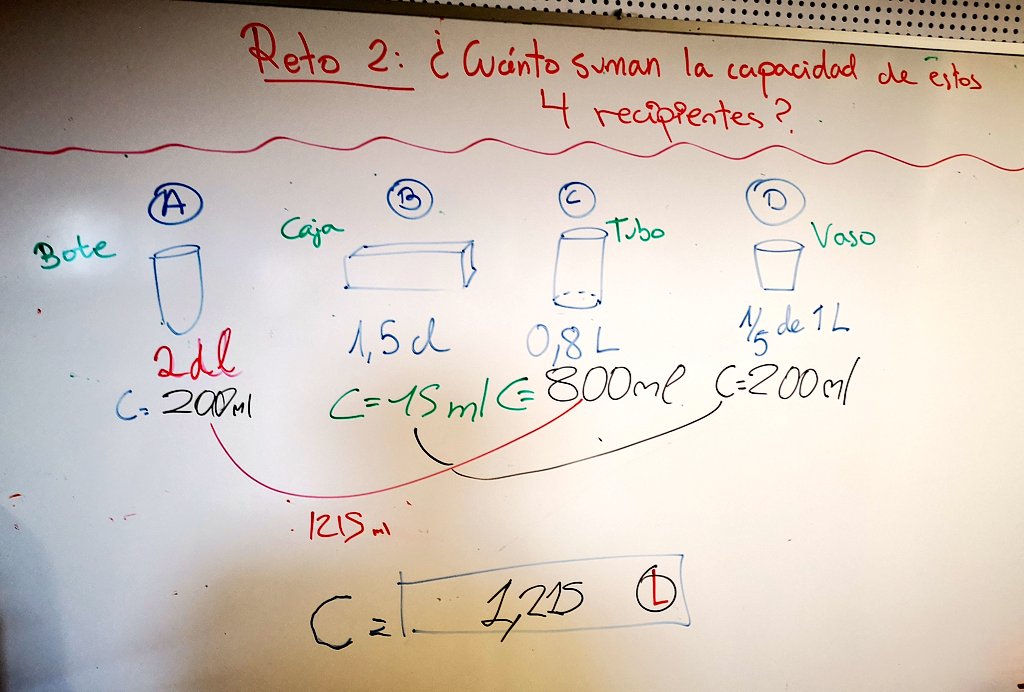 Reto 2: ¿Cuánto suman la capacidad de éstos
4 recipientes?
A B C D
Bote Caja Tubo Vaso
2dl 1,5 cl 0,8 L 1/5 de 1 L
C= 200ml C=15ml C= 800ml C=200ml
1215 ml
C= 1,215 L